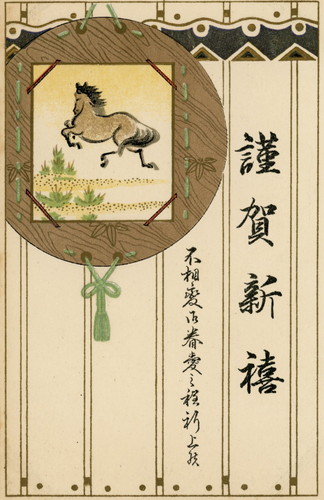 謹賀新禧
不相変御眷愛之程祈上候